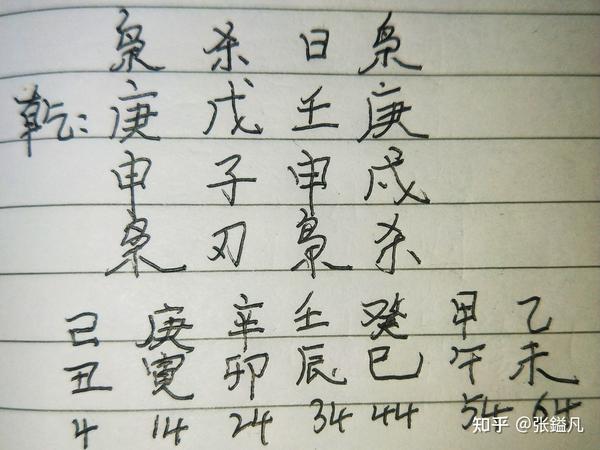 枭 杀 日 枭
乾: 庚 戊 壬 庚
申 子 申 戌
枭 刃 枭 杀
己 庚 辛 壬 癸 甲 乙
丑 寅 卯 辰 巳 午 未
4 14 24 34 44 54 64
知乎 @张鎰凡